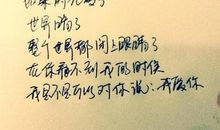 世界暗了
整个世界都闭上眼睛了
在你看不到我的时候
我是不是可以对你说:我爱你